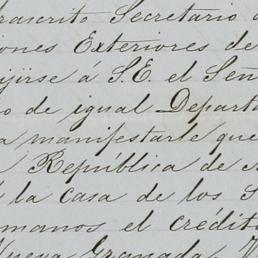 rascrito Secretario d
iones Exteriores de
ijirse á S.E. el Señ
o de igual Departa
a manifestarle que
República de
la casa de los S
manos el crédito
Nueva Granada, V